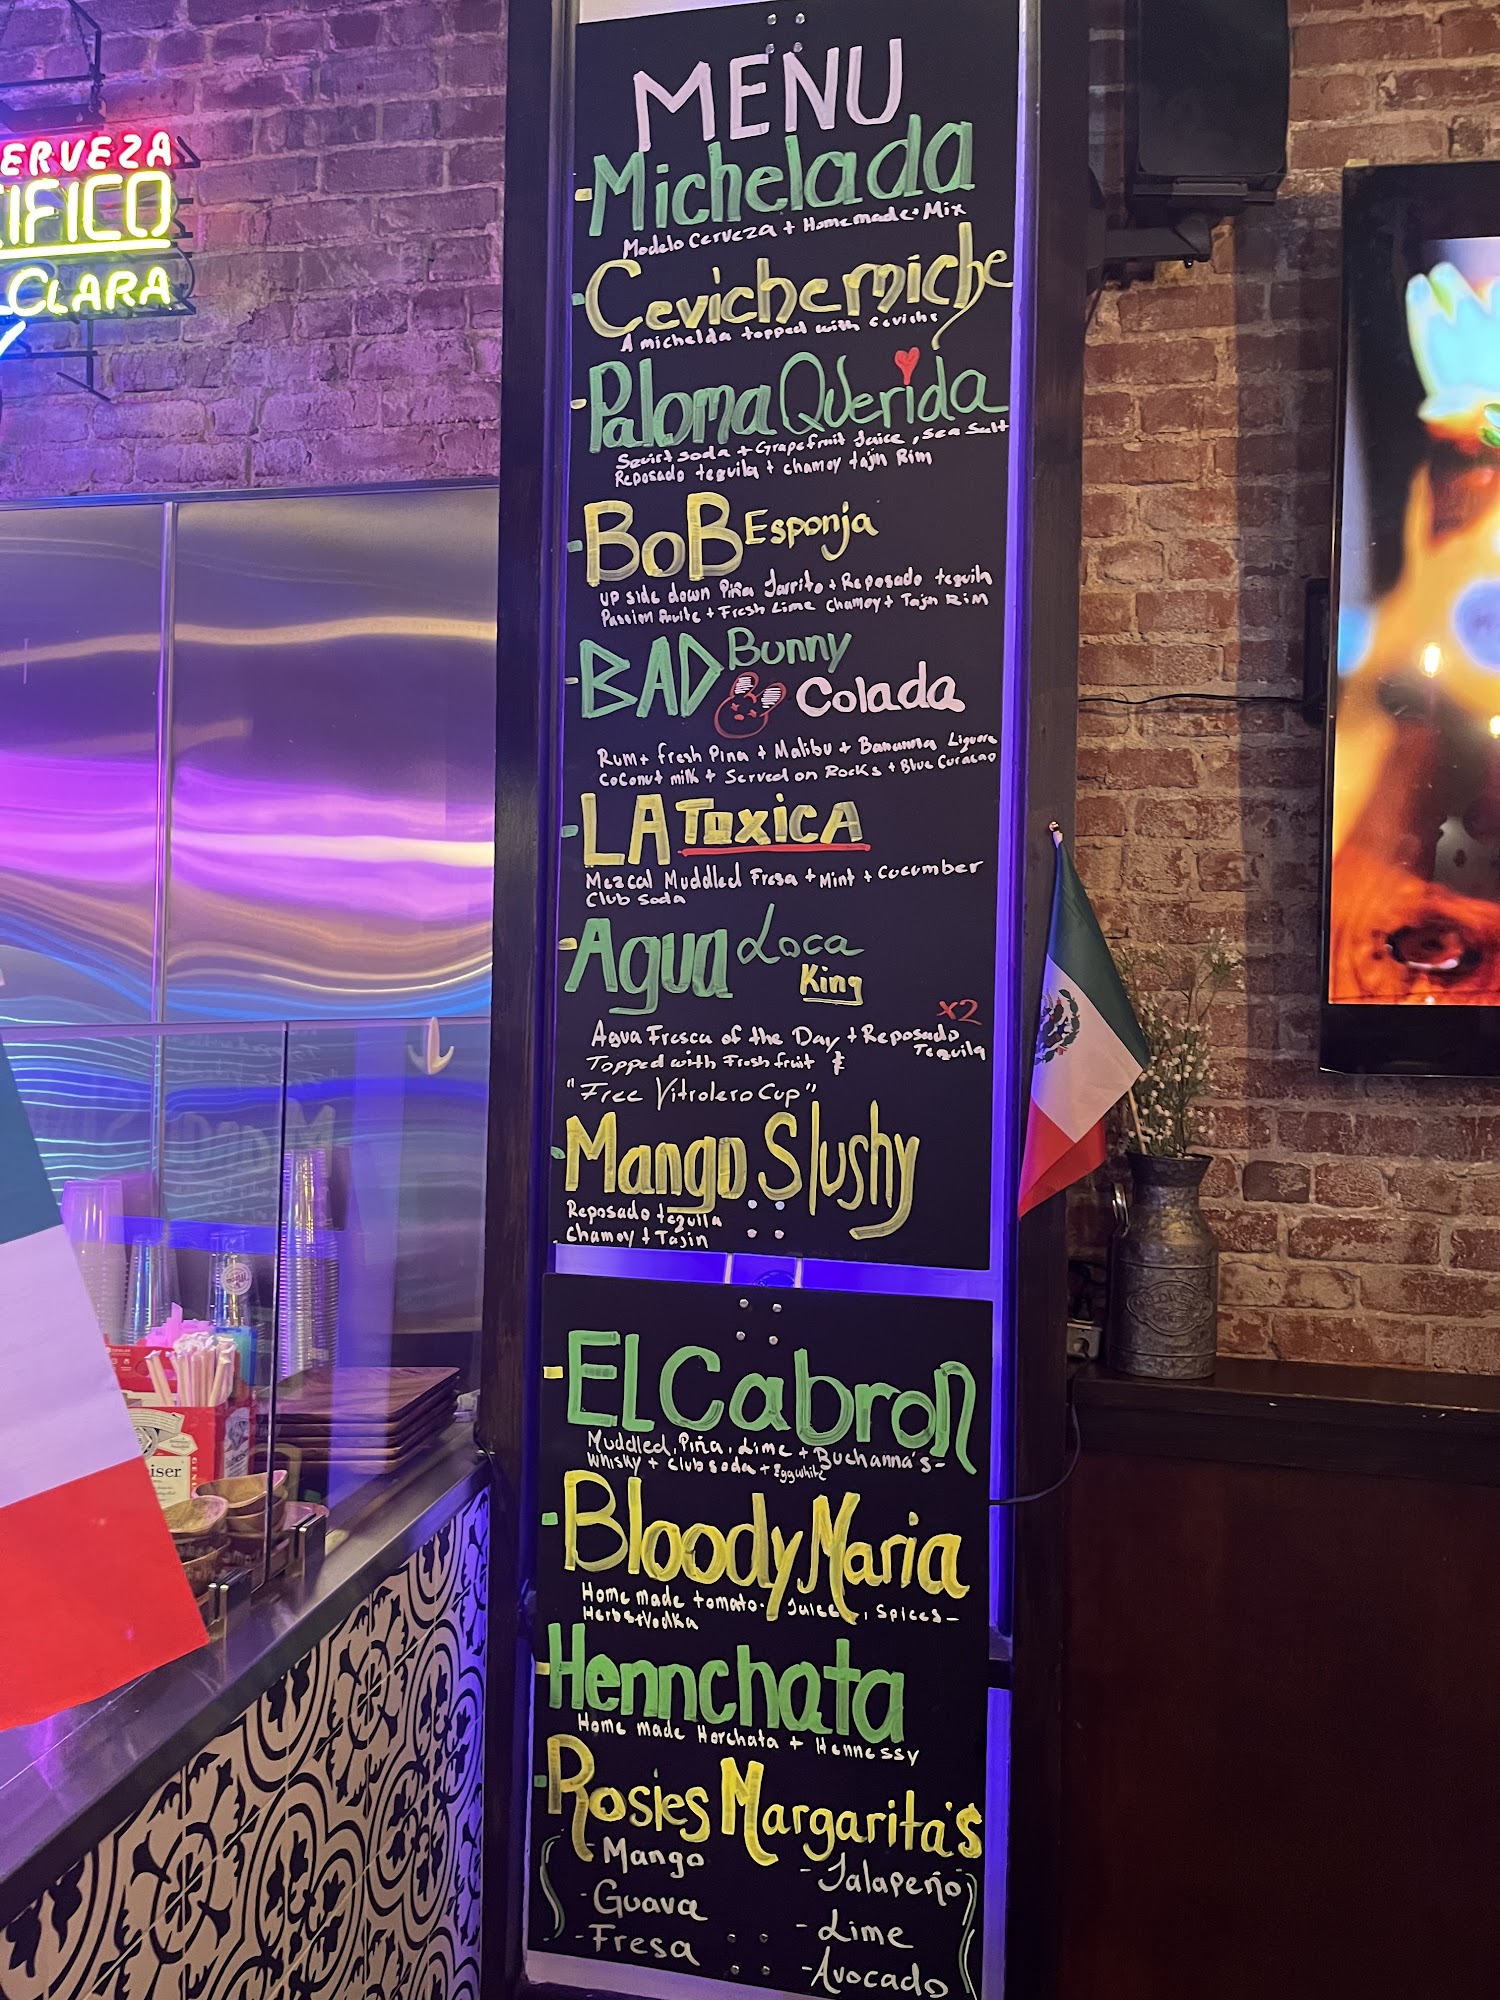 ERVEZA
IFICO
CLARA
MENU
Michelada
Modelo Cerveza + Homemade Mix
Cevichemiche
A michelda topped with Ceviche
Paloma Querida
Squirt soda + Grapefruit Juice, Sea Salt
Reposado tequila + chamoy tajin Rim
BoB Esponja
UP side down Piña Jarrito + Reposado tequila
Passion fruite + Fresh Lime Chamoy + Tajin RiM
BAD Bunny
Colada
Rum + fresh Pina + Malibu + Bananna Liquore
Coconut milk + Served on Rocks + Blue Curacao
LA ToxicA
Mezcal Muddled Fresa + Mint + Cucumber
Club Soda
Agua Loca
King
x2
Agua Fresca of the Day + Reposado
Tequila
Topped with Fresh fruit &
"Free Vitrolero Cup"
Mango Slushy
Reposado tequila
Chamoy + Tajin
EL Cabron
Muddled, Piña, Lime + Buchanna's-
Whisky + Club soda + Eggwhite
Bloody Maria
Home made tomato. Juice, Spices-
Herbs+Vodka
Hennchata
Home made Horchata + Hennessy
Rosies Margarita's
- Mango
- Jalapeño
- Guava
- Lime
- Fresa
- Avocado
iser